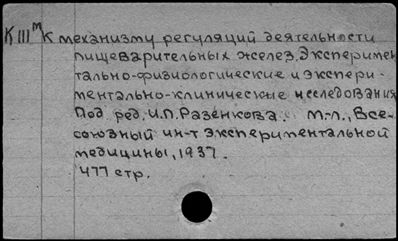 К III м К механизму регуляций деятельности
пищеварительных желез. Эксперимен
тально-физиологические и экспери-
ментально-клинические исследования
Под ред. И.П. Разенкова. М.-Л., Все-
союзный ин-т экспериментальной
медицины, 1937.
477 стр.